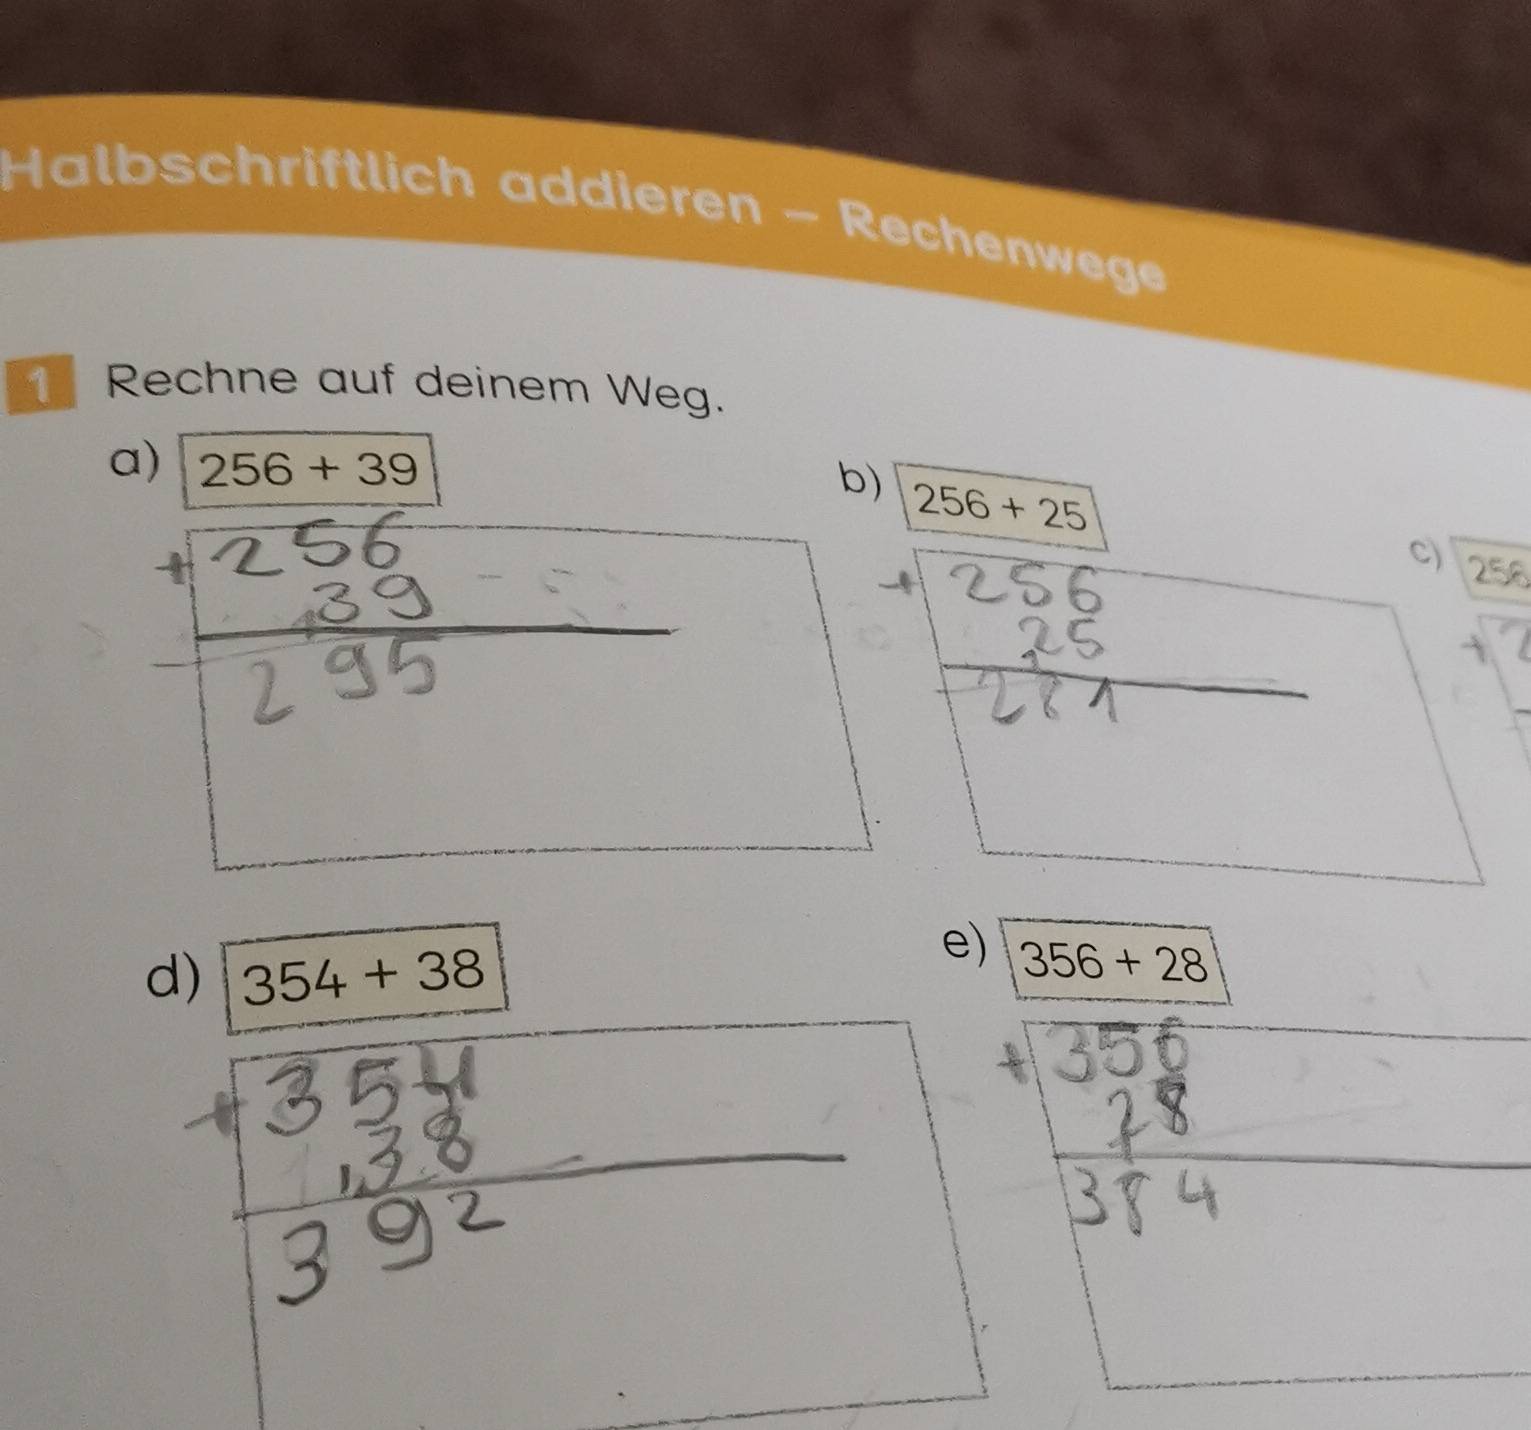 Halbschriftlich addieren – Rechenwege
1 Rechne auf deinem Weg.
a) 256 + 39
+256
1 39
295
b) 256 + 25
+256
1 25
281
c) 256
+2
d) 354 + 38
+354
1 38
392
e) 356 + 28
+356
28
1
384